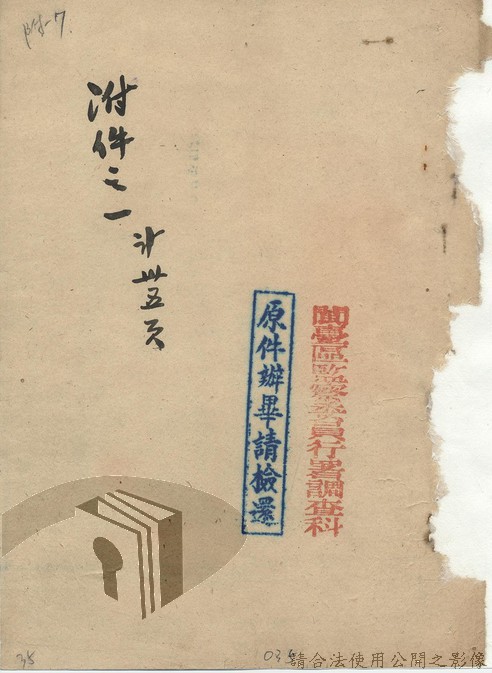 附-7
附件之一 計卅五頁
原件辦畢請檢還
閩臺區監察委員行署調查科
35
請合法使用公開之影像